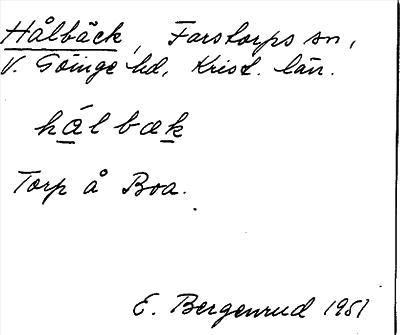 Hålbäck, Farstorps sn,
V. Göinge hd, Krist. län.
hálbæk
Torp å Boa.
E. Bergenrud 1951